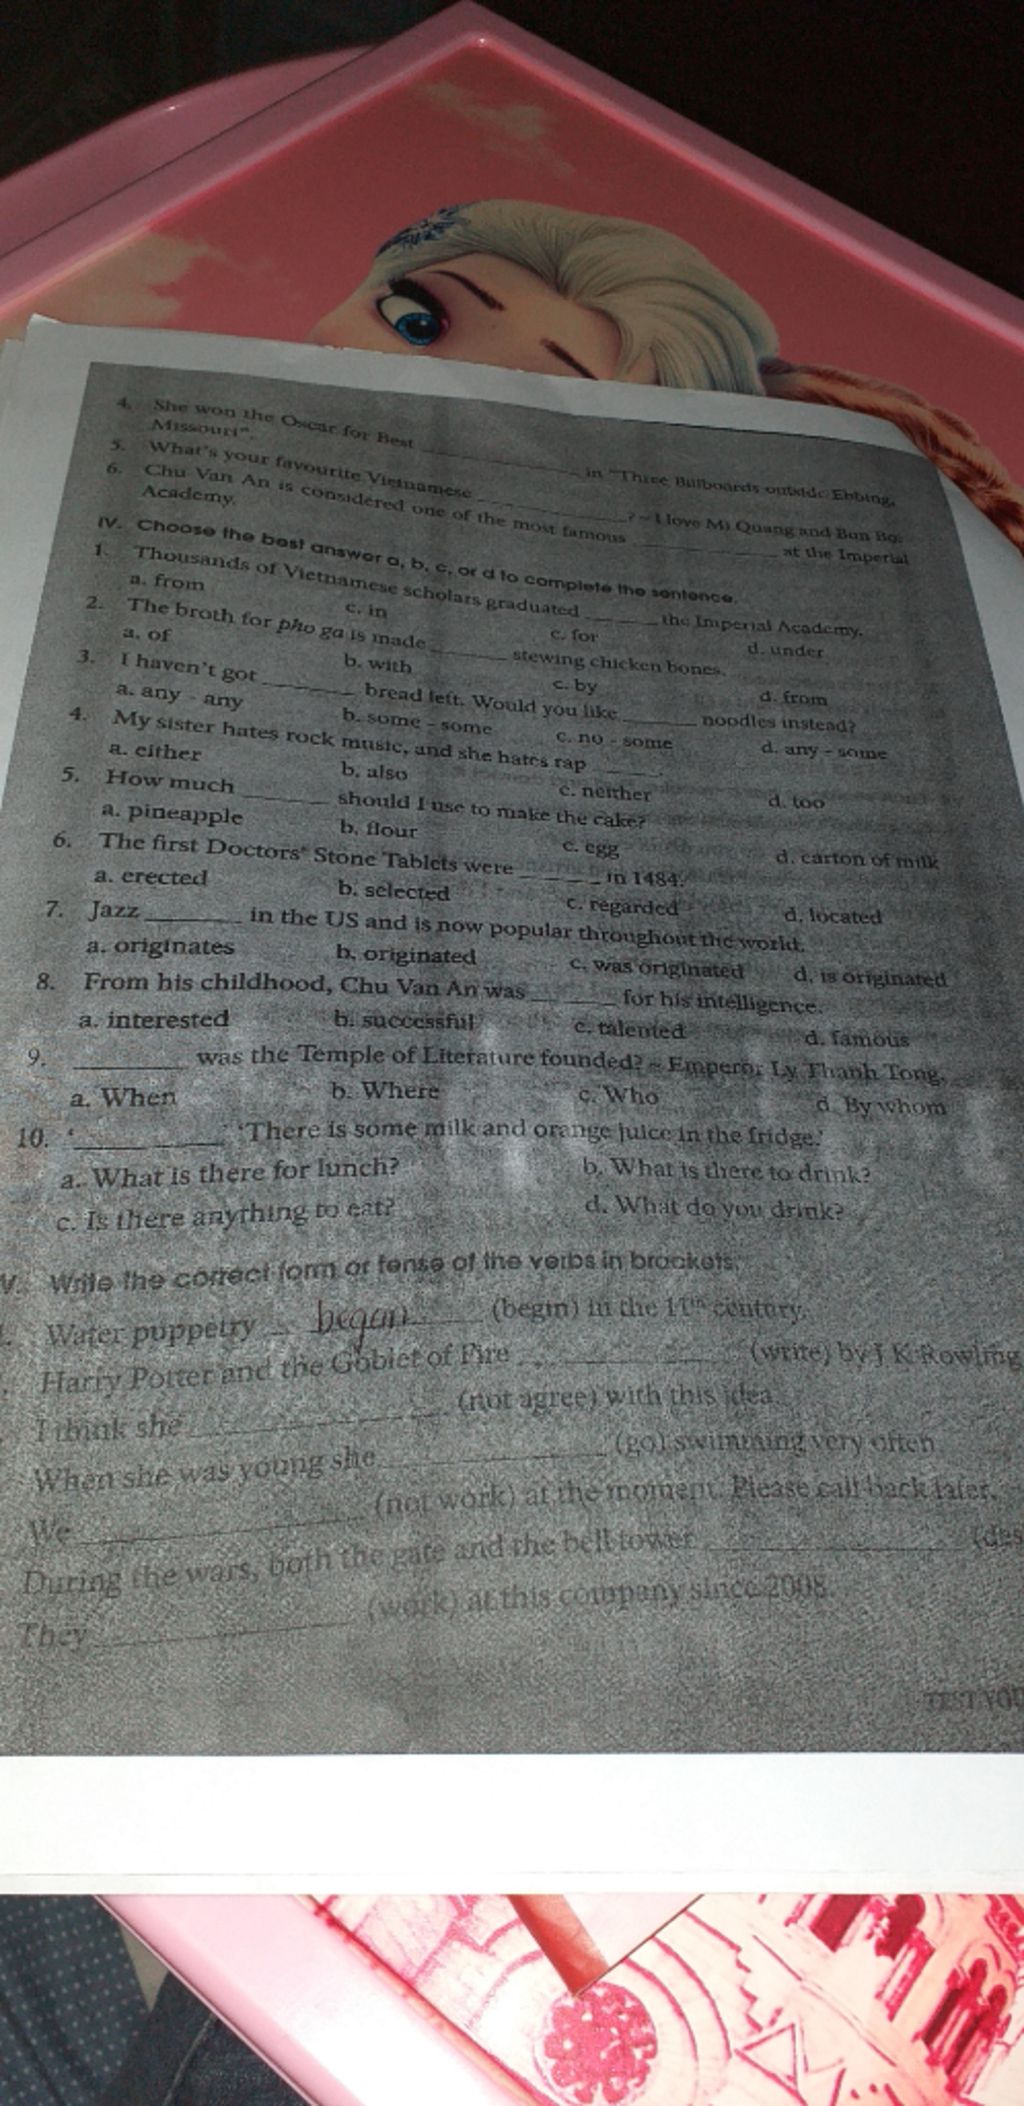 4. She won the Oscar for Best ____________ in "Three Billboards outside Ebbing,
Missouri".
5. What's your favourite Vietnamese ____________? ~ I love Mi Quang and Bun Bo.
6. Chu Van An is considered one of the most famous ____________ at the Imperial
Academy.
IV. Choose the best answer a, b, c, or d to complete the sentence.
1. Thousands of Vietnamese scholars graduated ______ the Imperial Academy.
a. from c. in c. for d. under
2. The broth for pho ga is made ______ stewing chicken bones.
a. of b. with c. by d. from
3. I haven't got ________ bread left. Would you like ______ noodles instead?
a. any - any b. some - some c. no - some d. any - some
4. My sister hates rock music, and she hates rap ______.
a. either b. also c. neither d. too
5. How much ________ should I use to make the cake?
a. pineapple b. flour c. egg d. carton of milk
6. The first Doctors' Stone Tablets were ________ in 1484.
a. erected b. selected c. regarded d. located
7. Jazz ________ in the US and is now popular throughout the world.
a. originates b. originated c. was originated d. is originated
8. From his childhood, Chu Van An was ________ for his intelligence.
a. interested b. successful c. talented d. famous
9. __________ was the Temple of Literature founded? ~ Emperor Ly Thanh Tong.
a. When b. Where c. Who d. By whom
10. '____________' 'There is some milk and orange juice in the fridge.'
a. What is there for lunch? b. What is there to drink?
c. Is there anything to eat? d. What do you drink?
V. Write the correct form or tense of the verbs in brackets.
Water puppetry began (begin) in the 11th century.
Harry Potter and the Goblet of Fire ____________ (write) by J K Rowling
I think she ____________ (not agree) with this idea.
When she was young she ____________ (go) swimming very often
We ____________ (not work) at the moment. Please call back later.
During the wars, both the gate and the bell tower ____________ (des
They ____________ (work) at this company since 2008.
TEST YOU